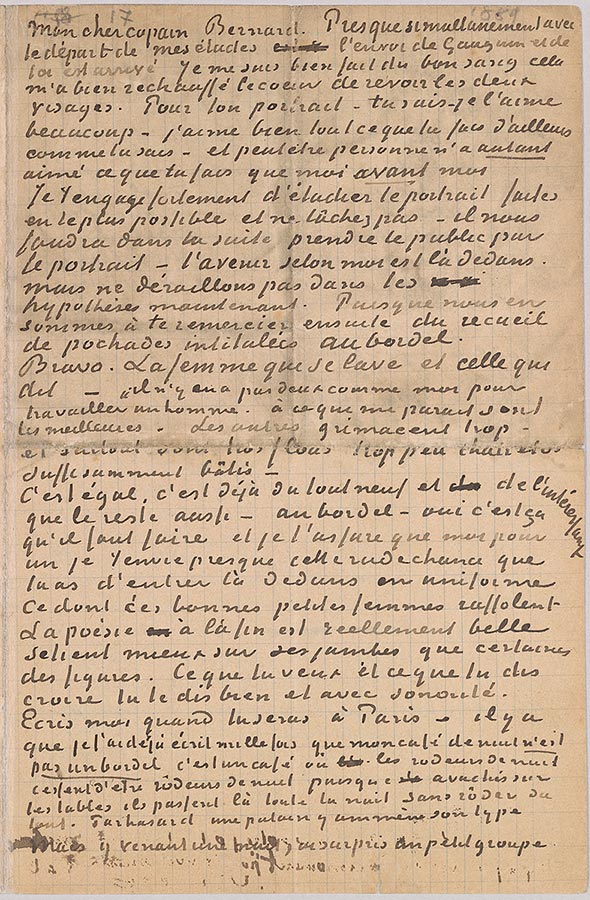 17 1889
Mon cher copain Bernard. Presque simultanement avec
le départ de mes études l'envoi de Gauguin et de
toi est arrivé Je me suis bien fait du bon sang cela
m'a bien rechauffé le coeur de revoir les deux
visages. Pour ton portrait – tu sais – je l'aime
beaucoup – j'aime bien tout ce que tu fais d'ailleurs
comme tu sais – et peutêtre personne n'a autant
aimé ce que tu fais que moi avant moi
Je t'engage fortement d'étudier le portrait faites
en le plus possible et ne lâchez pas – il nous
faudra dans la suite prendre le public par
le portrait – l'avenir selon moi est là dedans.
mais ne déraillons pas dans les
hypothèses maintenant. Puisque nous en
sommes à te remercier ensuite du recueil
de pochades intitulées au bordel.
Bravo. La femme qui se lave et celle qui
dit – il n'y en a pas deux comme moi pour
travailler un homme. à ce que me parait sont
les meilleures. Les autres grimacent trop –
et surtout sont trop flous trop peu chair et os
suffisamment bâtis –
C'est égal, c'est déjà du tout neuf et de l'intéressant
que le reste aussi – au bordel – oui c'est ça
qu'il faut faire et je t'assure que moi pour
un je t'envie presque cette rude chance que
tu as d'entrer là dedans en uniforme
Ce dont ces bonnes petites femmes raffolent
La poésie à la fin est réellement belle
se tient mieux sur ses jambes que certaines
des figures. Ce que tu veux et ce que tu dis
croire tu le dis bien et avec sonorité.
Ecris moi quand tu seras à Paris – il y a
que je t'ai déjà écrit mille fois que mon café de nuit n'est
pas un bordel c'est un café où les rodeurs de nuit
cessent d'etre rôdeurs de nuit puisque avachis sur
les tables ils passent là toute la nuit sans rôder du
tout. Par hasard une putain y ammène son type
Mais y venant une nuit j'ai surpris un petit groupe